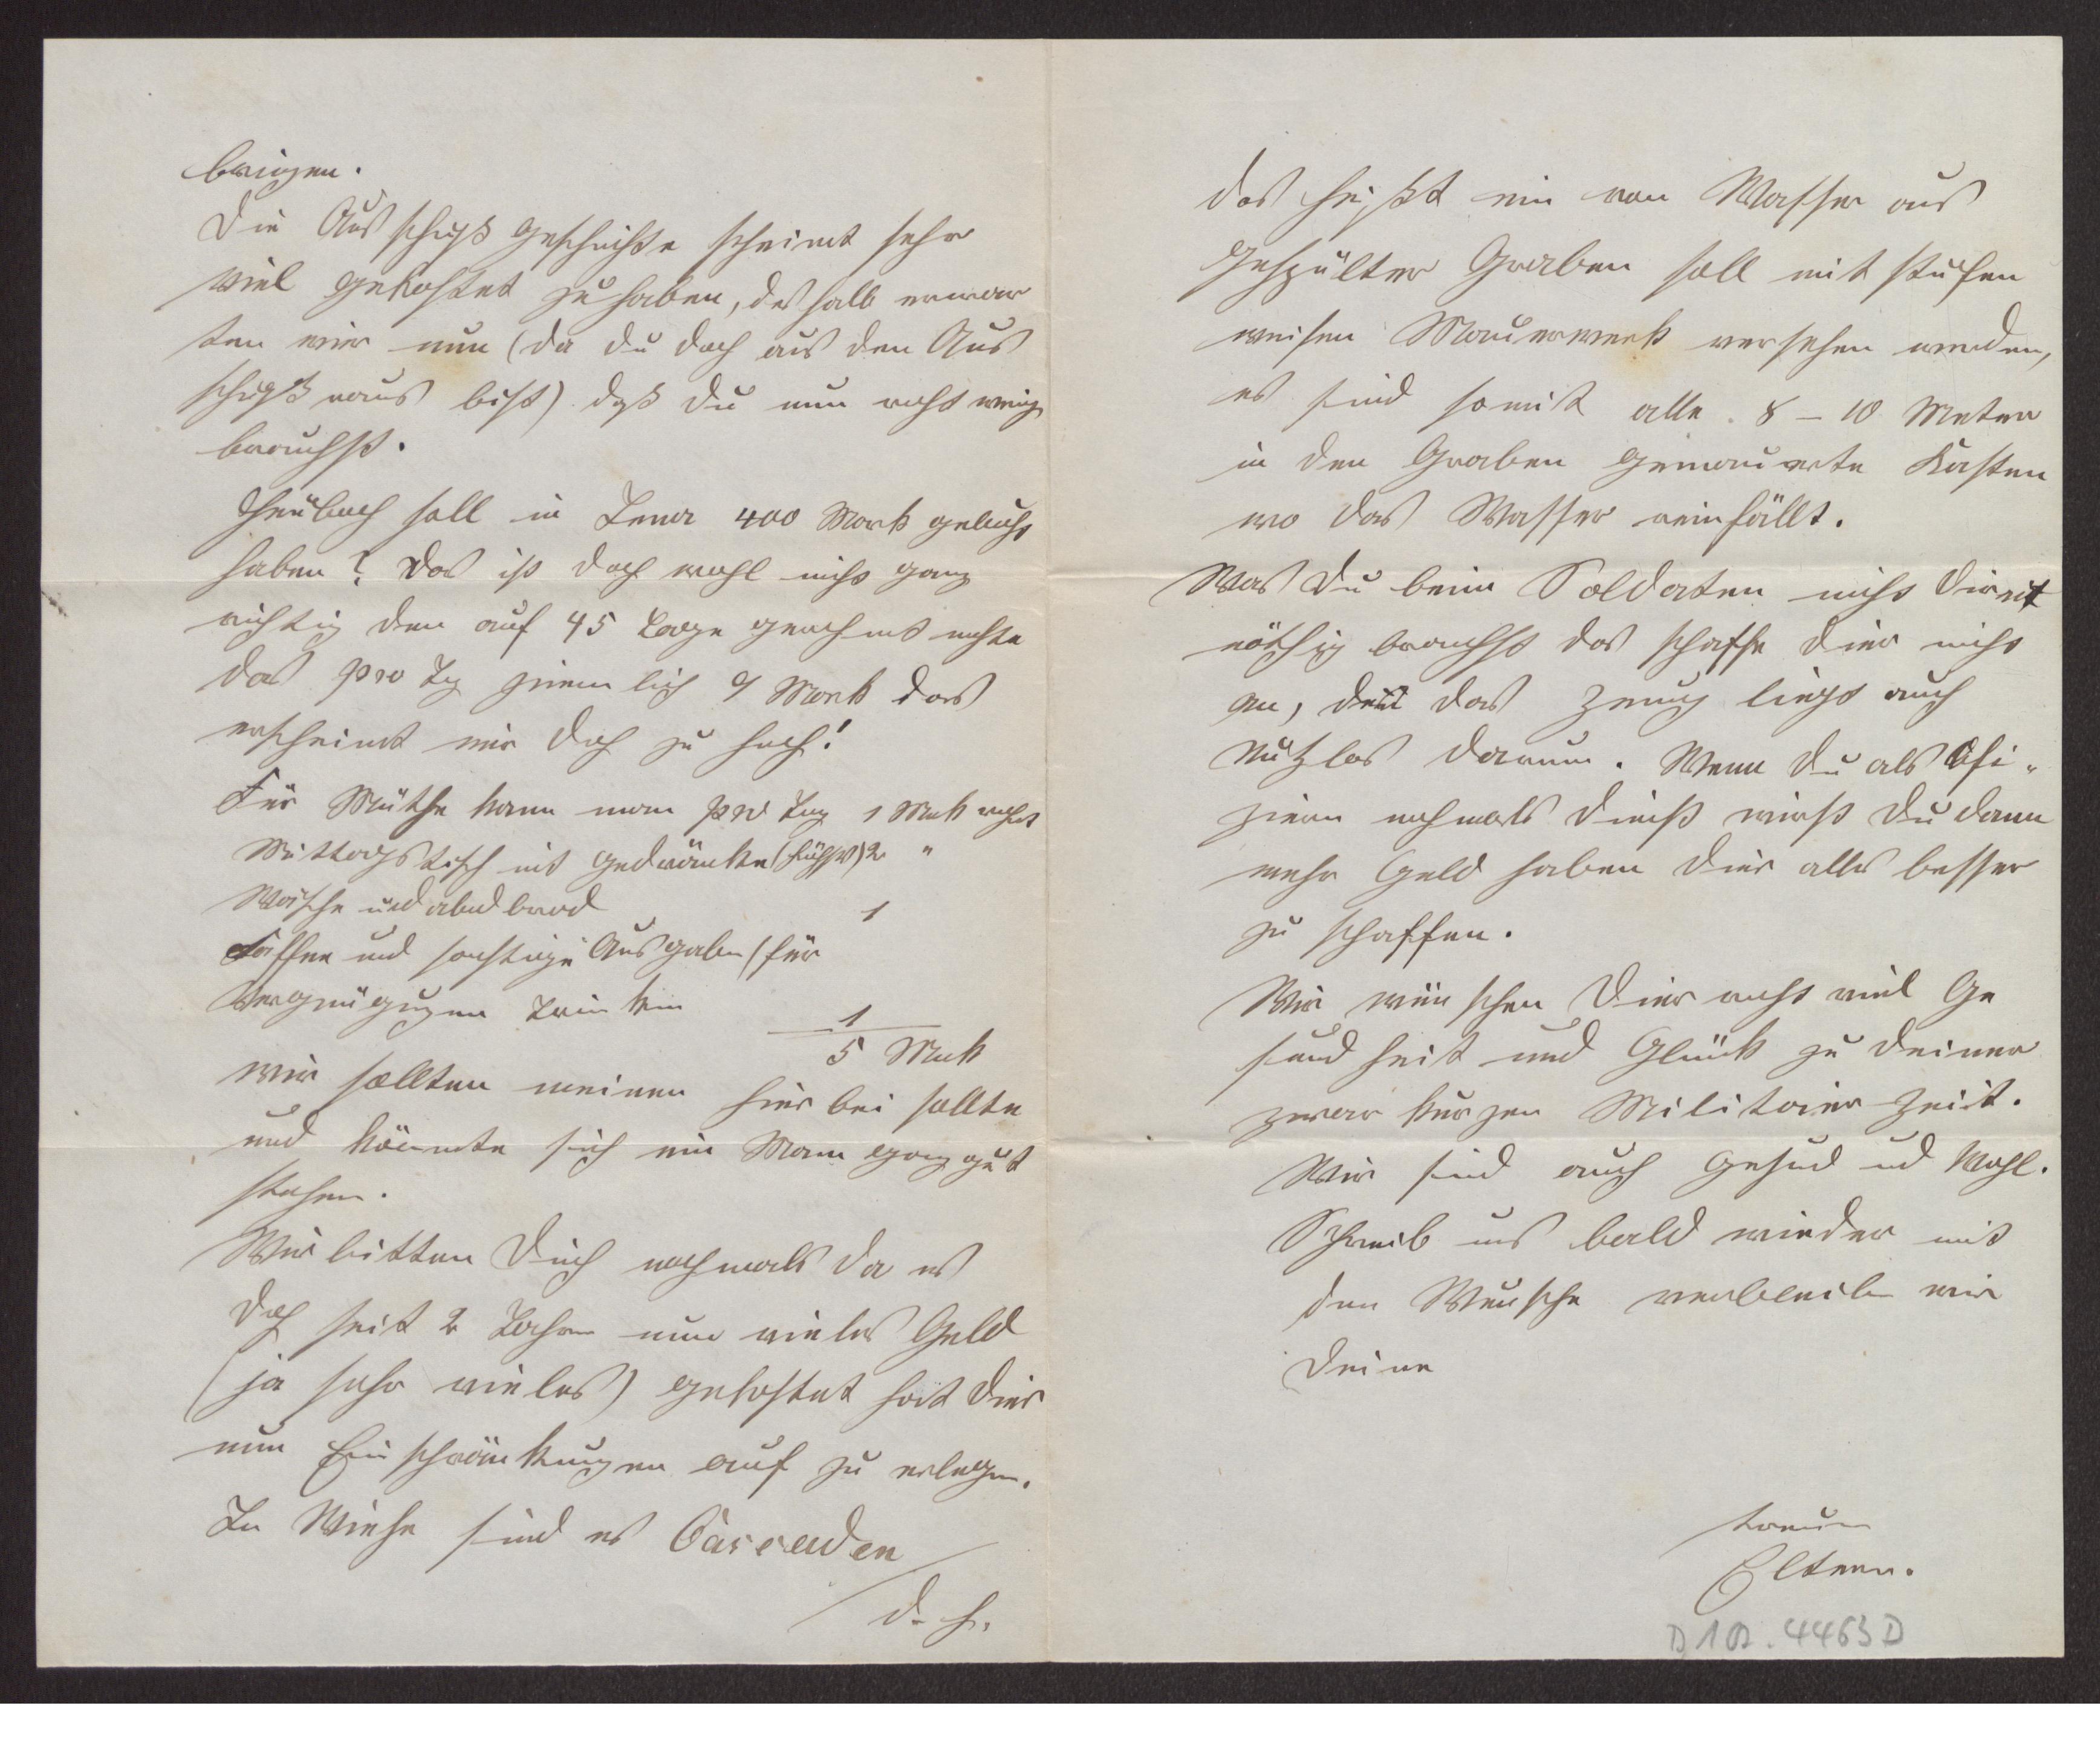 bringen.
Die Ausschuß geschichte scheint sehr
viel gekostet zu haben, deshalb erwar
ten wir nun (da du doch aus den Aus
schuß raus bist) daß du nun recht wenig
brauchst.
Heubach soll in Jena 400 Mark gebraucht
haben? Das ist doch wohl nicht ganz
richtig den auf 45 Tage gerechnet machte
das pro Tg ziemlich 9 Mark das
erscheint mir doch zu hoch!
Für Miethe kann man pro Tag 1 Mark rechnet
Mittagstisch mit Gedränke 2 "
Wäsche und abendbrod 1
Kaffee und sonstige Ausgaben (für
Vergnügugen Trinken 1
5 Mark
wir sollten meinen hierbei sollte
und könnte sich ein Mann ganz gut
stehen.
Wir bitten Dich nochmals da es
doch seit 2 Jahren nun vieles Geld
(ja sehr vieles) gekostet hat Dier
nun Einschränkungen auf zu erlegen.
In Wiehe sind es Cascaden
d. h.
das heißt ein von Wasser aus
gespülter Graben soll mit stufen
weisen Mauerwerk versehen werden,
es sind somit alle 8 – 10 Meter
in den Graben gemauerte Kasten
wo das Wasser reinfällt.
Was Du beim Soldaten nicht direct
nöthig brauchst das schaffe Dier nicht
an, den das Zeuug liegt auch
nutzlos darum. Wenn Du als Ofi-
ziern nochmals dienst wirst Du dann
mehr Geld haben Dier alles besser
zu schaffen.
Wir wünschen Dier recht viel Ge
sundheit und Glück zu deiner
zwar kurzen Militairer Zeit.
Wir sind auch gesund und Wohl.
Schreib uns bald wieder mit
den Wunsche verbleiben wir
Deine
treuen
Eltern.
D 10. 4463 D